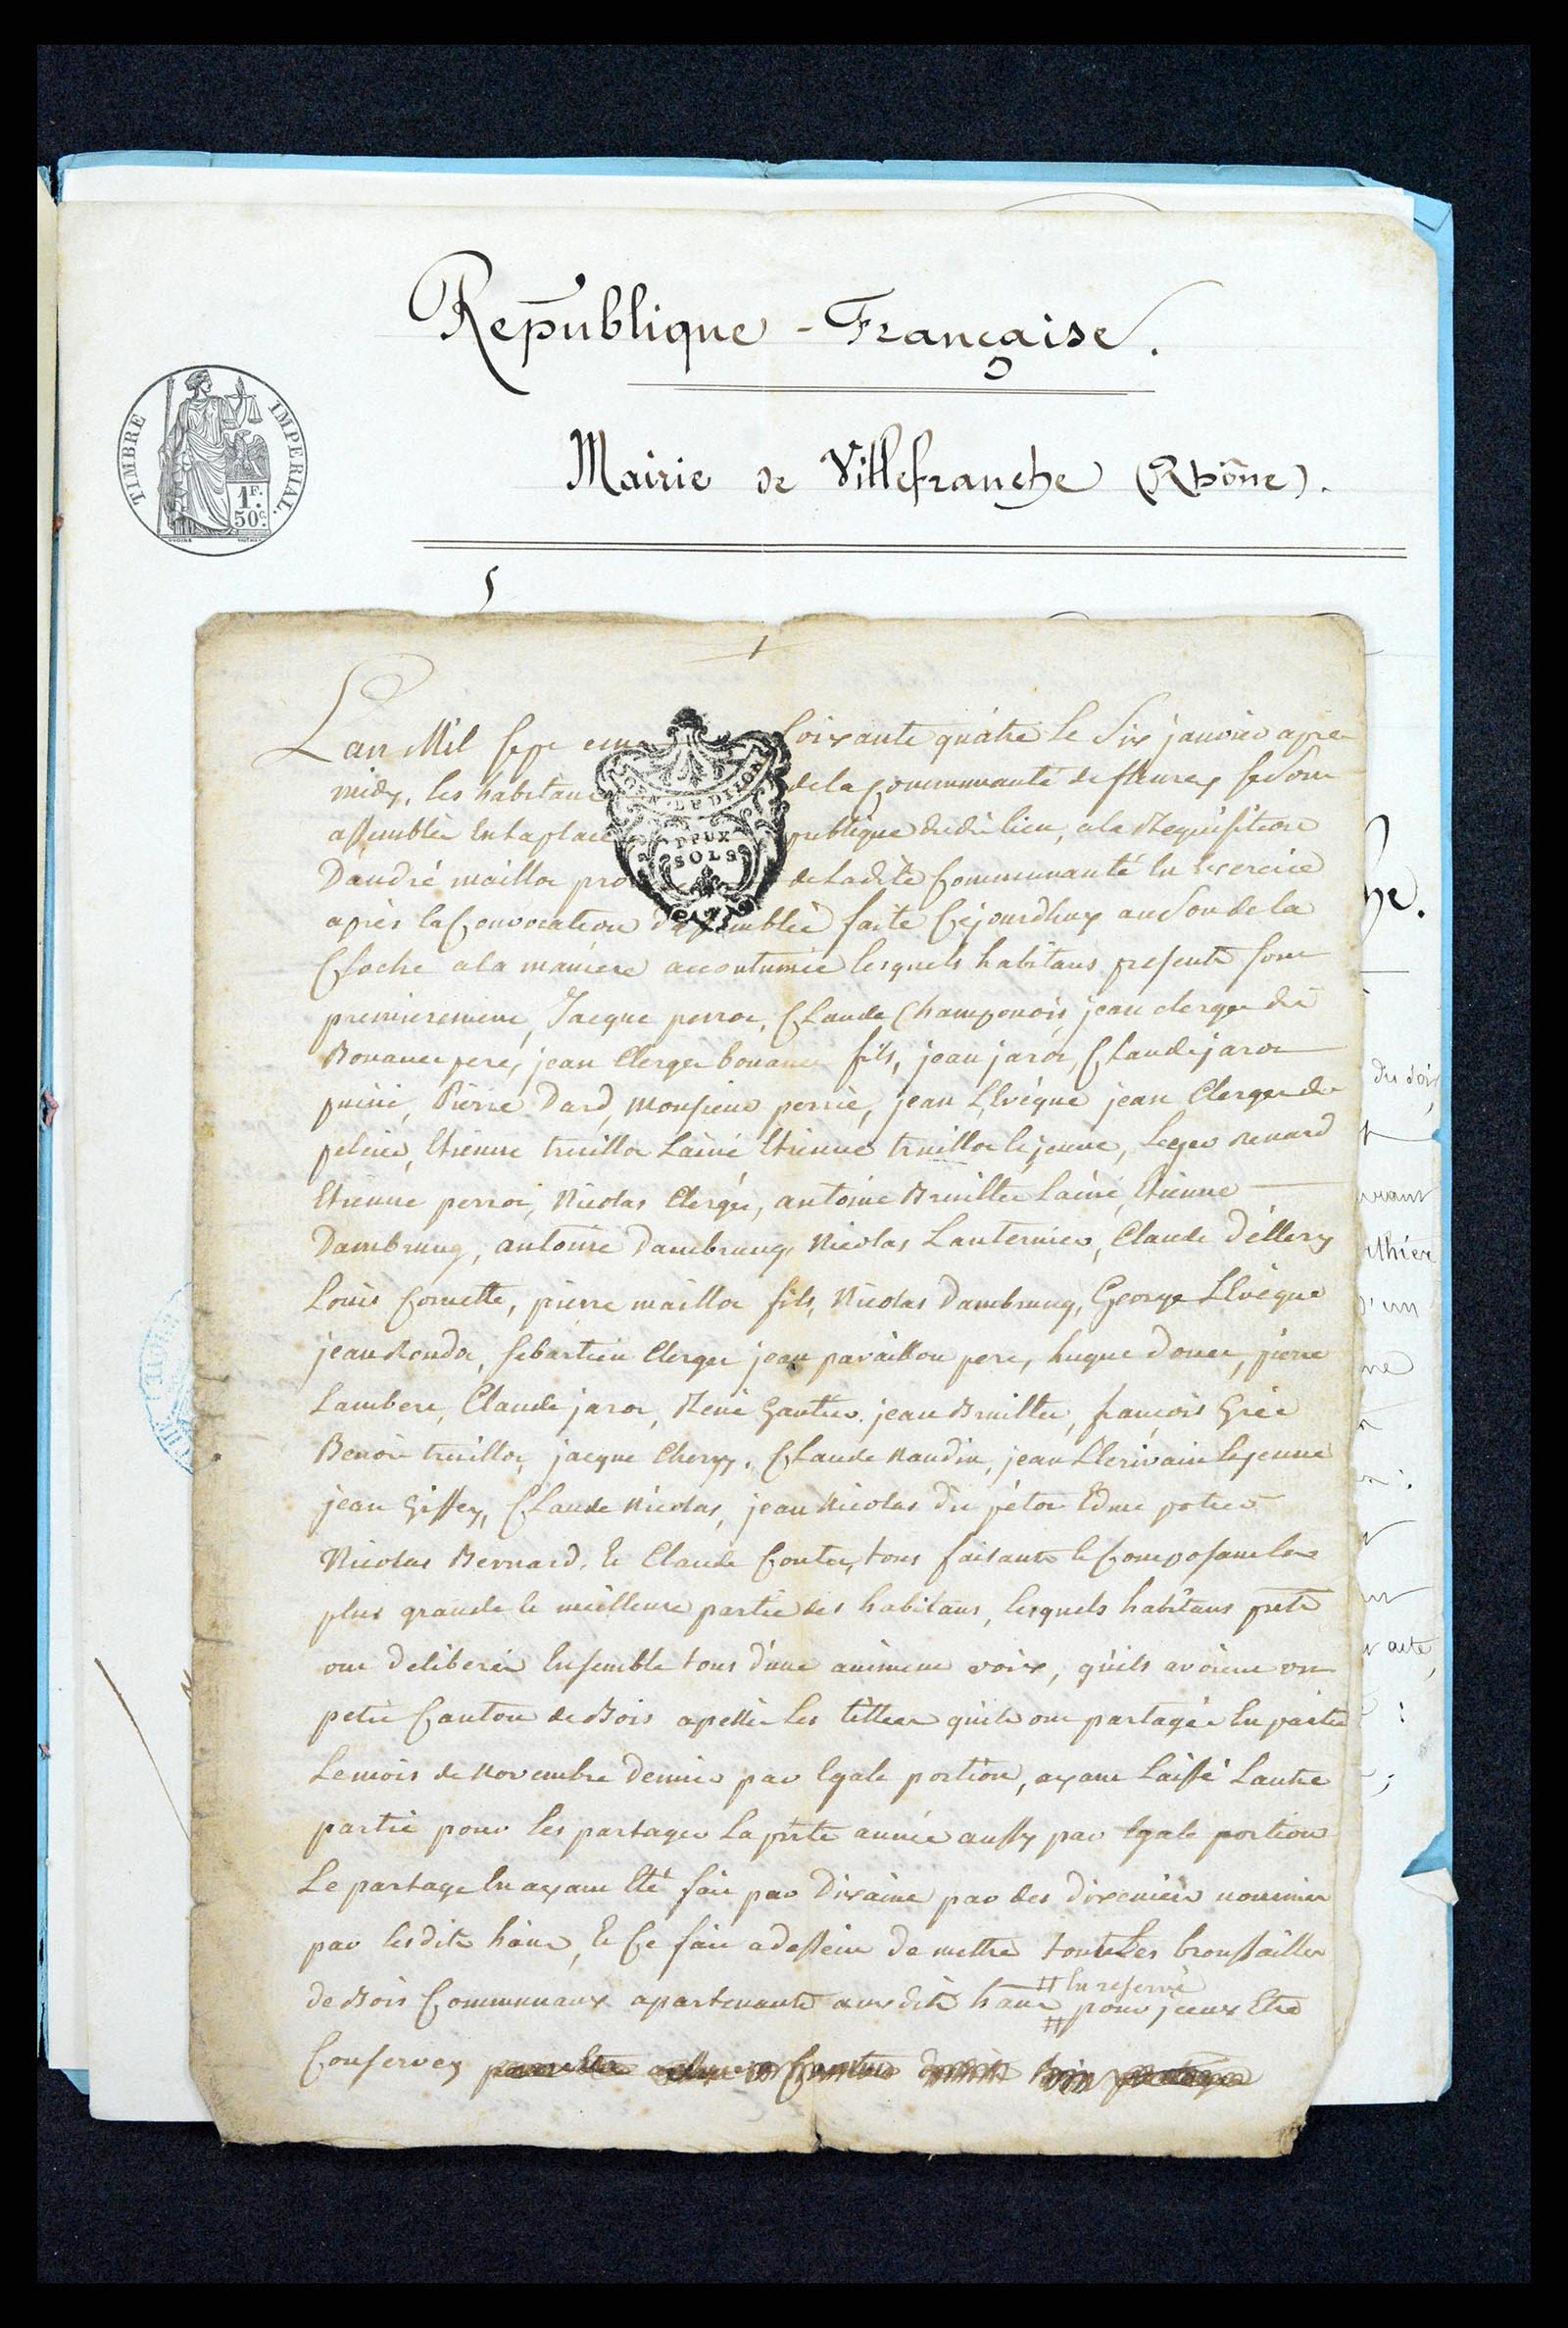 République - Française.
TIMBRE IMPERIAL.
1F.
50c.
Mairie de Villefranche (Rhône).
1
Lan Mil sept cent soixante quatre le six janvier apre
midy, les habitans de la Communauté de fleurey se sont
assemblée En la place publique dudit lieu, a la Requisition
Dandré maillot pro de Ladite Communauté En Exercice
après la Convocation Dassemblée faite Cejourdhuy au Son de la
Cloche a la maniere accoutumée lesquels habitans presents sont
premierement, Jacque perrot, Claude Champonois, jean clerget dit
Bonnance pere, jean Clerget bonance fils, jean jarot, Claude jarot
puiné, Pierre Dard, Monsieur perrié, jean LEvêque jean Clerget dit
pelerin, Etienne truillot Lainé Etienne truillot le jeune, Leger renard
Etienne perrot, Nicolas Clerget, antoine Bruillée Lainé, Etienne
Dambruny, antoine Dambruny, Nicolas Lanternier, Claude Déllery
Louis Cornette, pierre maillot fils, Nicolas Dambruny, George LEvêque
jean Rondot, Sebastien Clerget jean pavaillon pere, hugue Douet, pierre
Lambert, Claude jarot, René Gautier, jean Bruillée, françois Grée
Benoit truillot, jacque Chery, Claude Naudin, jean LEcrivain le jeune
jean Giffey, Claude Nicolas, jean Nicolas dit pétot Edme potier
Nicolas Bernard, Et Claude Coutier, tous faisants Et Composant la
plus grande Et meilleure partie des habitans, lesquels habitans pnts
ont deliberé Ensemble tous d'une animeme voix, qu'ils avoient un
petit Canton de Bois apellé les tillear qu'ils ont partagée En partie
Le mois de Novembre Dernier par Egale portion, ayant Laissé Lautre
partie pour les partager La pnte année aussy par Egale portion
Le partage En ayant Eté fait par Dixaine par des dixeniers nommés
par lesdits hans, Et Ce fait a dessein de mettre toutes Les broussailles
de Bois Communaux apartenants auxdits hans # pour jceux Etre
# En reserve
Conservey
DEUX
SOLS
he.
du soir
vivant
thier
d'un
ne
acte,